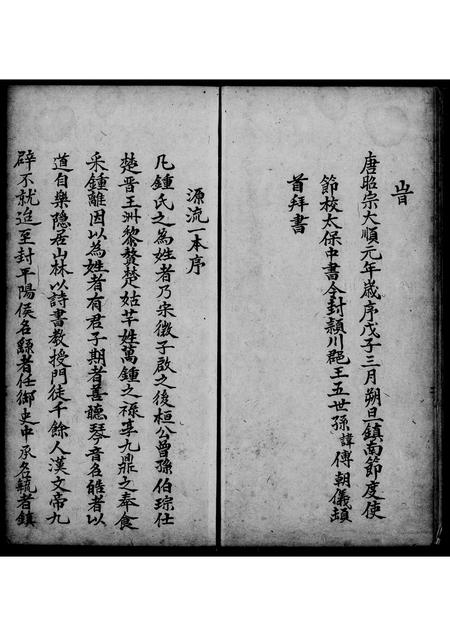 旹
唐昭宗大順元年歲序戊子三月朔旦鎮南節度使
節校太保中書令封潁川郡王五世孫諱傳朝儀頓
首拜書
源流一本序
凡鍾氏之為姓者乃宋微子啟之後桓公曾孫伯琮仕
楚晉王洲黎贅楚姑芊姓萬鍾之祿享九鼎之奉食
采鍾離因以為姓者有君子期者善聽琴音名皓者以
道自樂隱居山林以詩書教授門徒千餘人漢文帝九
辟不就迨至封平陽侯名繇者任御史中丞名毓者鎮